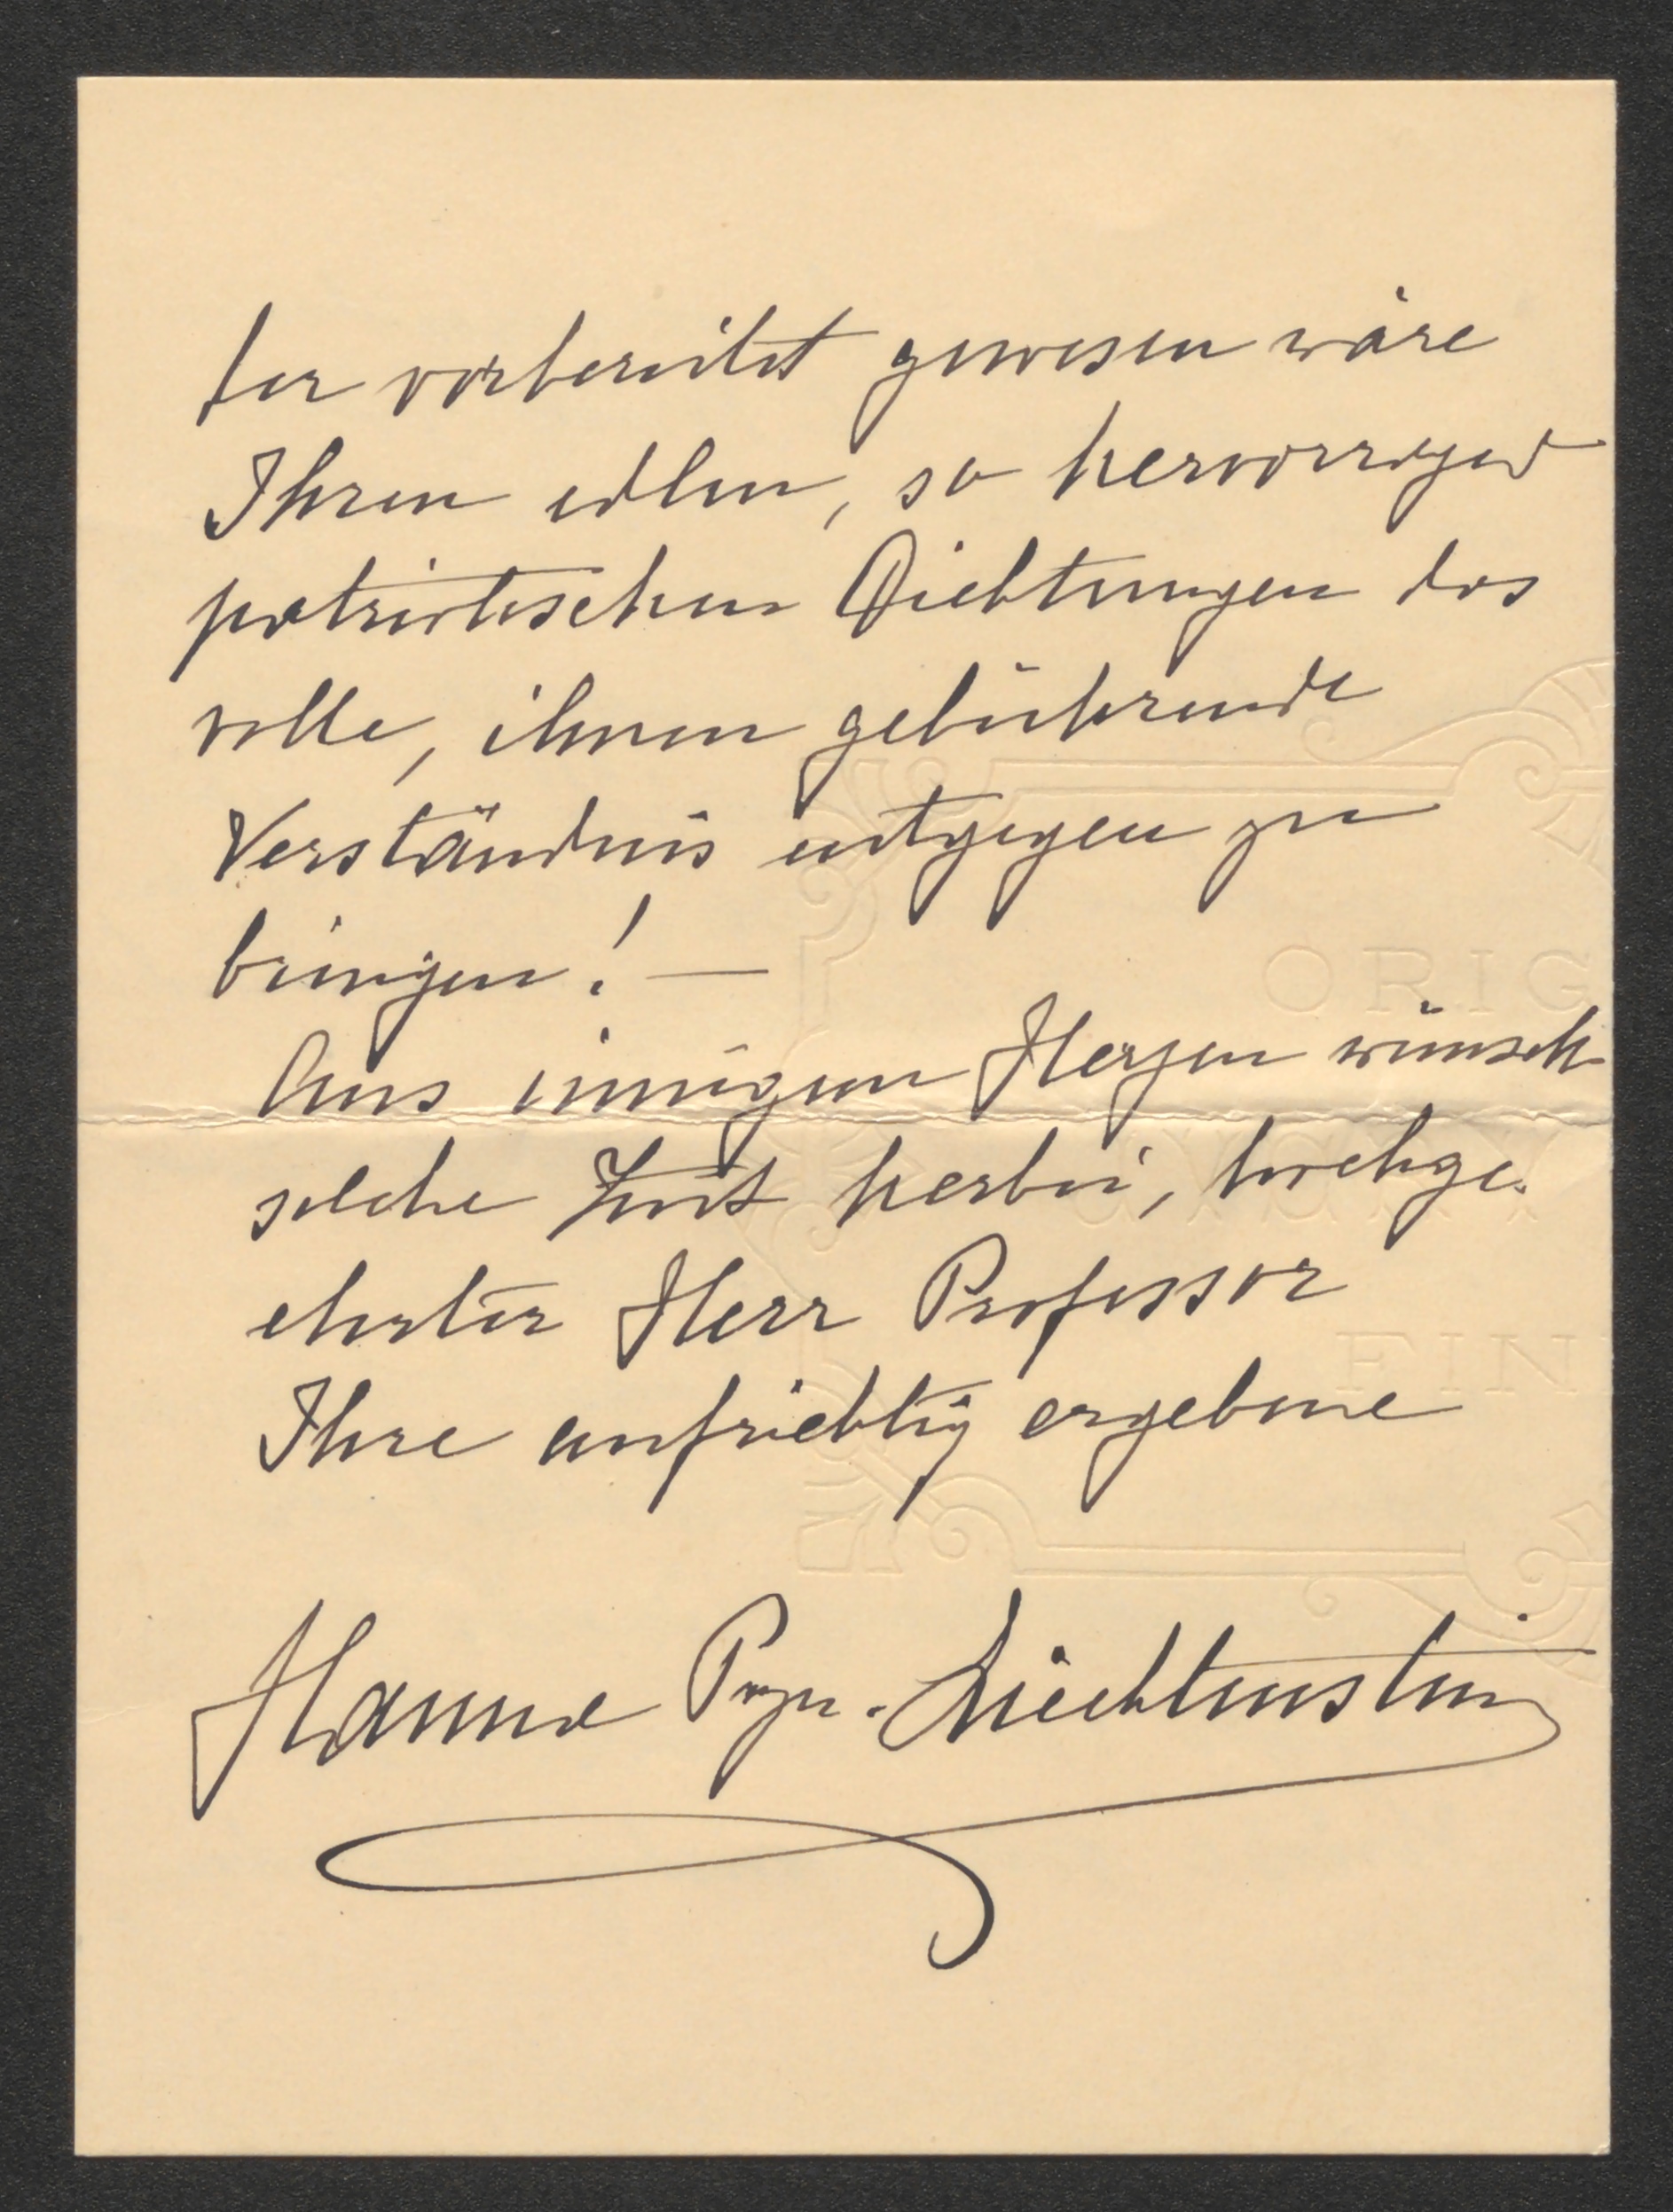 der vorbereitet gewesen wäre
Ihren edlen, so hervorragend
patriotischen Dichtungen das
volle, ihnen gebührende
Verständnis entgegen zu
bringen! —
Aus innigem Herzen wünsch
solche Zeit herbei, hochge-
ehrter Herr Professor
Ihre aufrichtig ergebene
Hanna Przn. Liechtenstein
ORIG
FIN